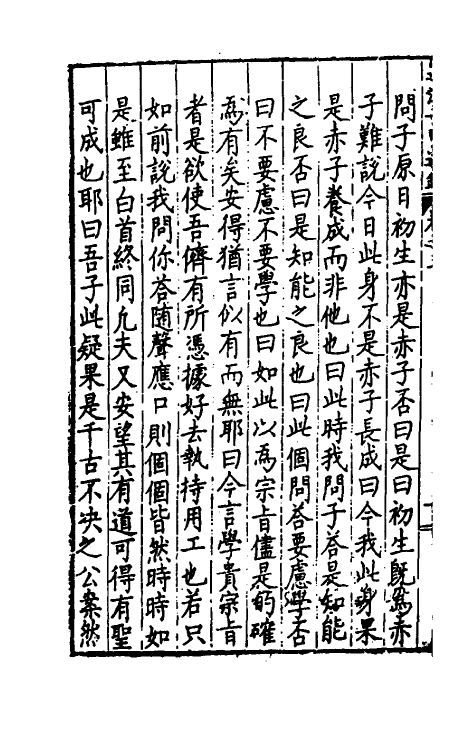 問子原日初生亦是赤子否曰是曰初生既為赤
子難說今日此身不是赤子長成曰今我此身果
是赤子養成而非他也曰此時我問子荅是知能
之良否曰是知能之良也曰此個問荅要慮學否
曰不要慮不要學也曰如此以為宗旨儘是的確
為有矣安得猶言似有而無耶曰今言學貴宗旨
者是欲使吾儕有所憑據好去執持用工也若只
如前說我問你荅随聲應口則個個皆然時時如
是雖至白首終同凢夫又安望其有道可得有聖
可成也耶曰吾子此疑果是千古不决之公案然